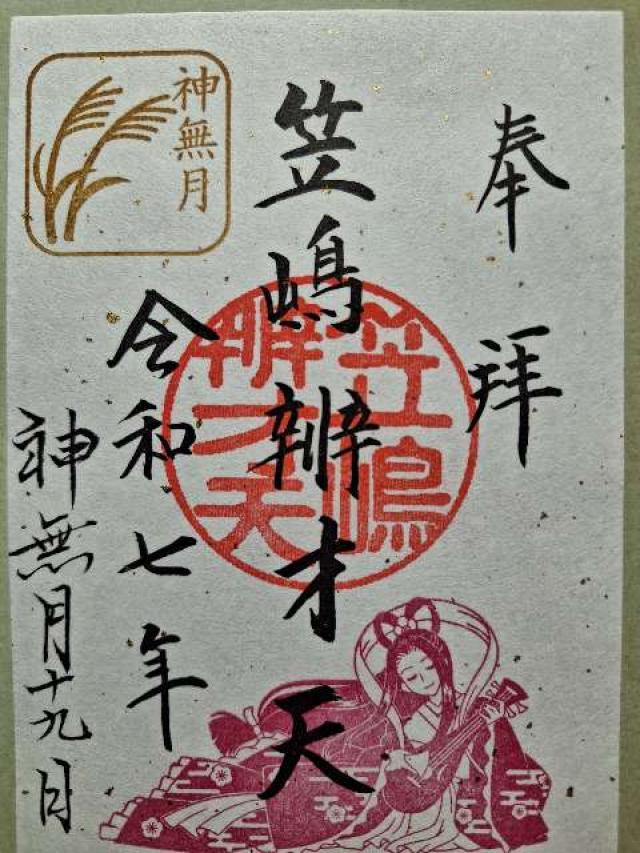 奉拝
笠嶋辨才天
笠嶋
辨才天
令和七年
神無月十九日
神無月